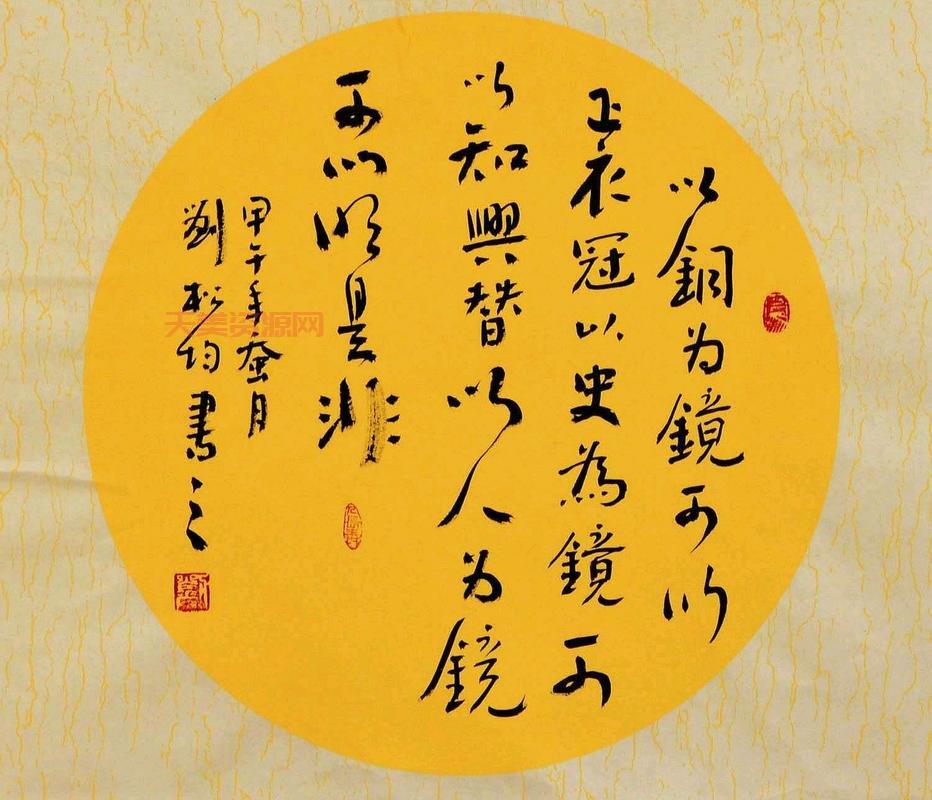 以銅为鏡可以
正衣冠以史為鏡可
以知興替以人为鏡
可以明是非
甲午年蚕月
劉松均書之
天美资源网